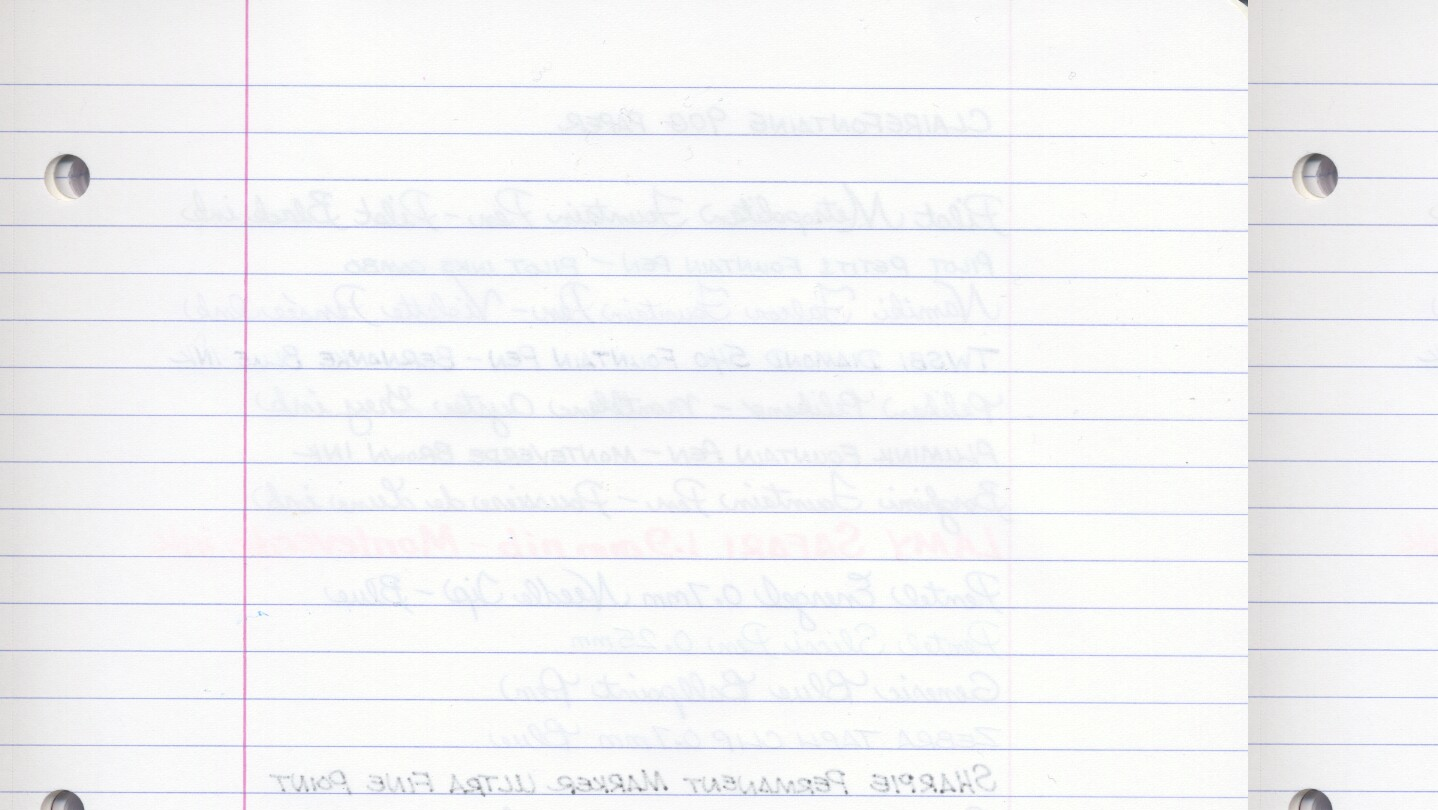 CLAIREFONTAINE 90G PAPER
Pilot Metropolitan Fountain Pen - Pilot Black ink
PILOT PETIT1 FOUNTAIN PEN - PILOT
Namiki Falcon Fountain Pen - Violette Pensée ink
TWSBI DIAMOND 540 FOUNTAIN PEN - BERNANKE BLUE INK
Pelikan Pelikano - Noodlers Grey ink
FOUNTAIN PEN - MONTEVERDE BROWN INK
Fountain Pen - Poussiere de Lune ink
LAMY SAFARI 1.9mm nib - Monteverde ink
Pentel Energel 0.7mm Needle Tip - Blue
Pentel Slicci Pen 0.25mm
Generic Blue Ballpoint Pen
ZEBRA TAPLI CLIP 0.7mm Blue
SHARPIE PERMANENT MARKER ULTRA FINE POINT